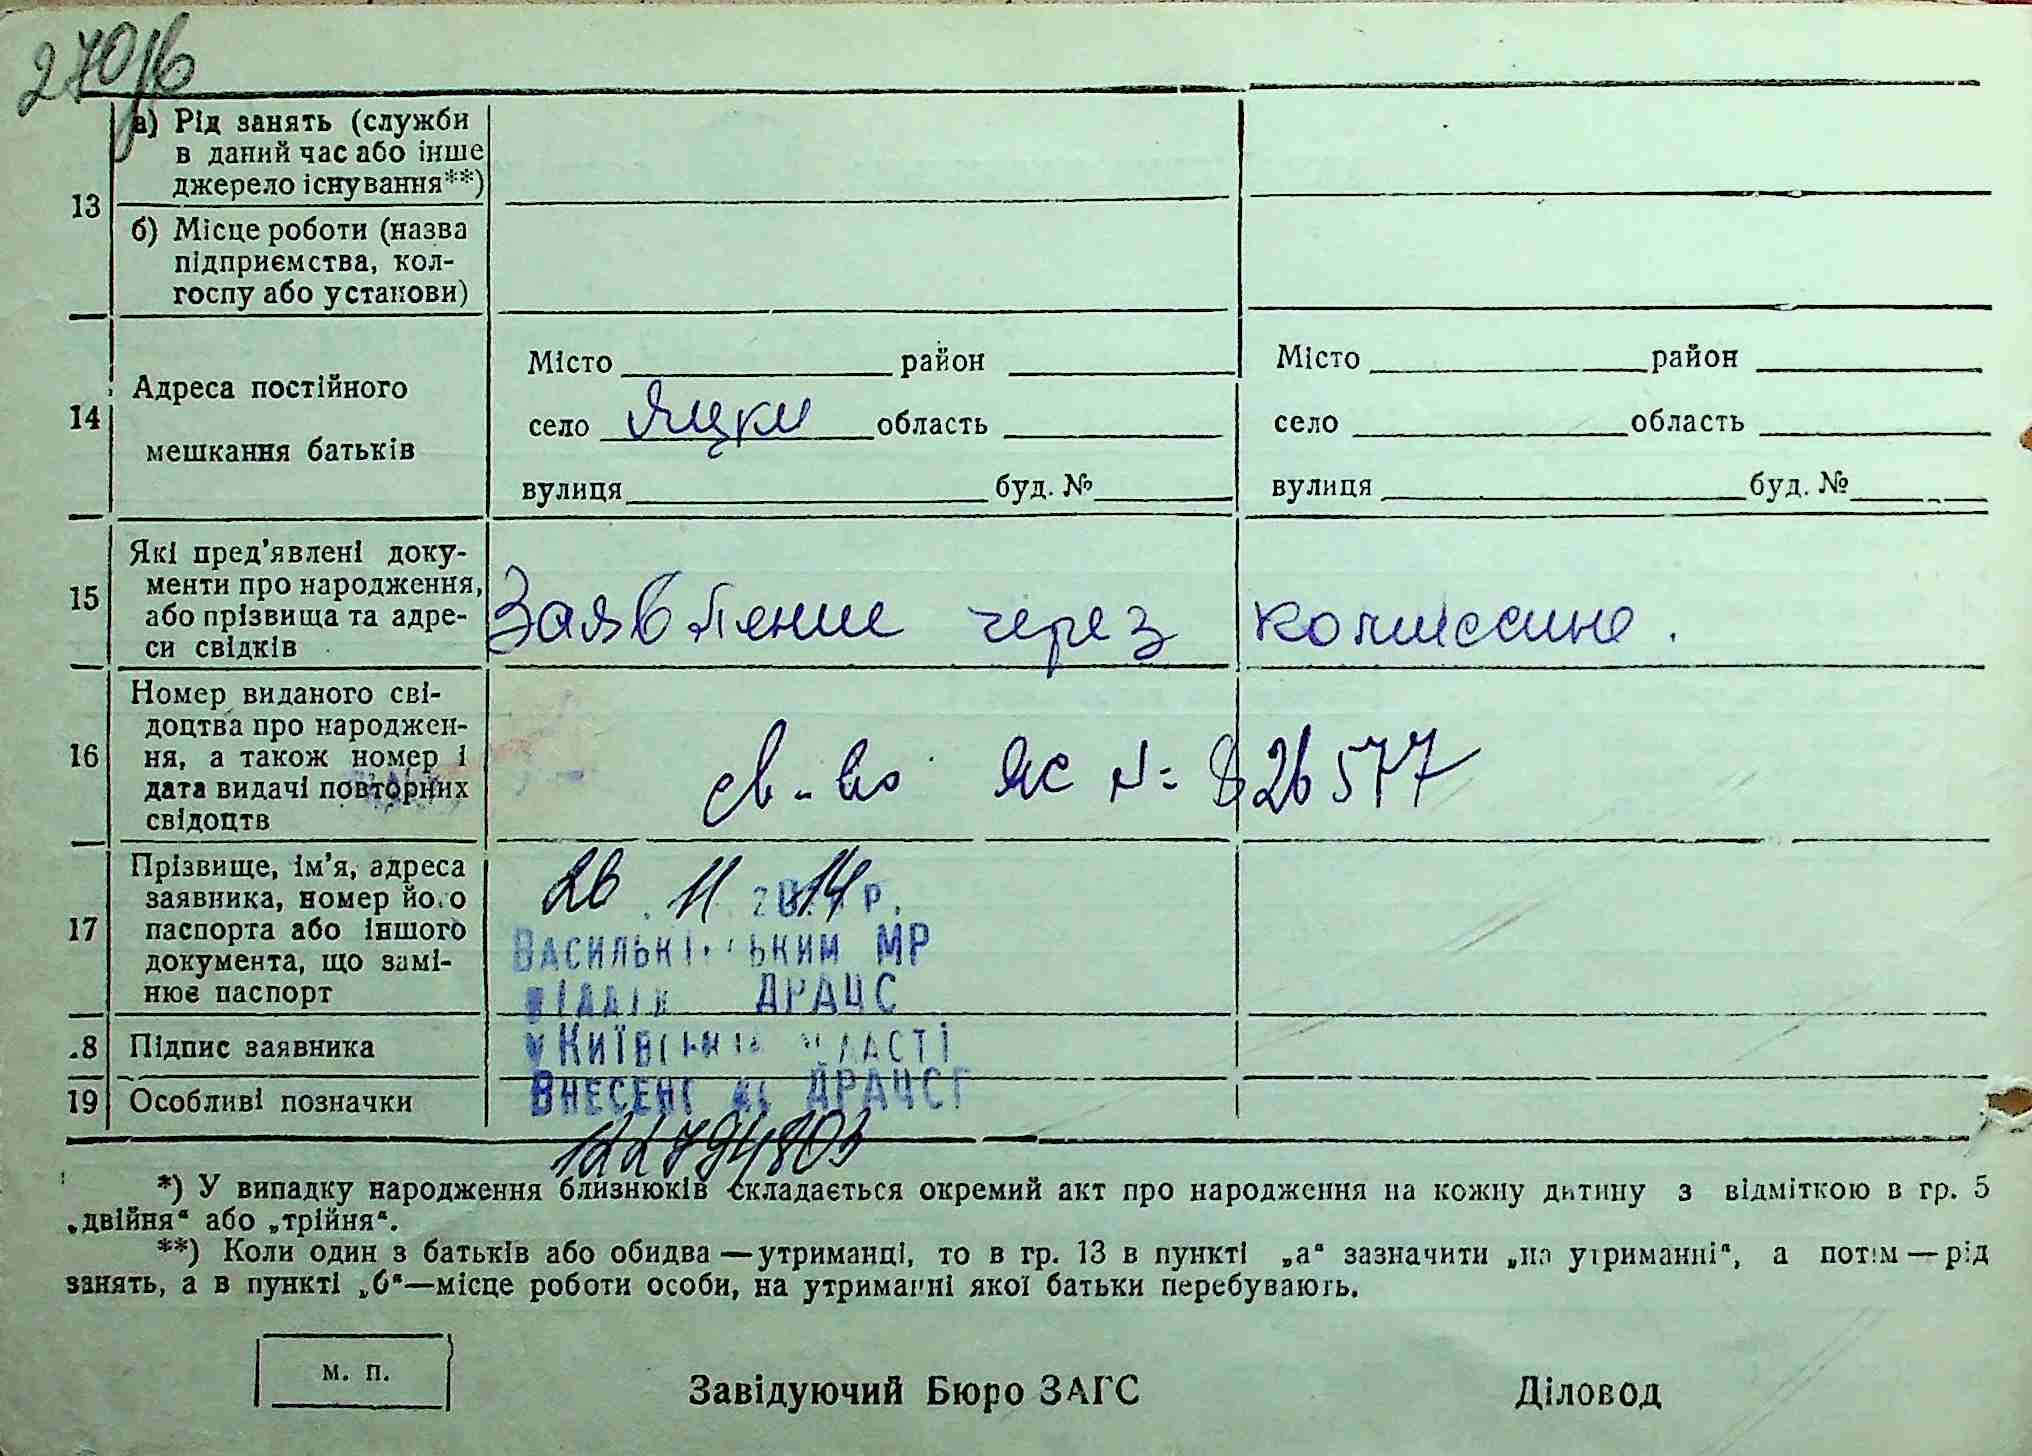 270/б
13
а) Рід занять (служби
в даний час або інше
джерело існування**)
б) Місце роботи (назва
підприємства, кол-
госпу або установи)
14
Адреса постійного
мешкання батьків
Місто район
село Яцки область
вулиця буд. №
Місто район
село область
вулиця буд. №
15
Які пред'явлені доку-
менти про народження,
або прізвища та адре-
си свідків
Заявление через комиссию.
16
Номер виданого сві-
доцтва про народжен-
ня, а також номер і
дата видачі повторних
свідоцтв
св-во ЯС № 826577
17
Прізвище, ім'я, адреса
заявника, номер його
паспорта або іншого
документа, що замі-
нює паспорт
26.11.2014р.
Васильківським МР
відділ ДРАЦС
у Київській області
Внесено до ДРАЦСГ
122794803
18
Підпис заявника
19
Особливі позначки
*) У випадку народження близнюків складається окремий акт про народження на кожну дитину з відміткою в гр. 5
„двійня“ або „трійня“.
**) Коли один з батьків або обидва — утриманці, то в гр. 13 в пункті „а“ зазначити „на утриманні“, а потім — рід
занять, а в пункті „б“—місце роботи особи, на утриманні якої батьки перебувають.
м. п.
Завідуючий Бюро ЗАГС
Діловод